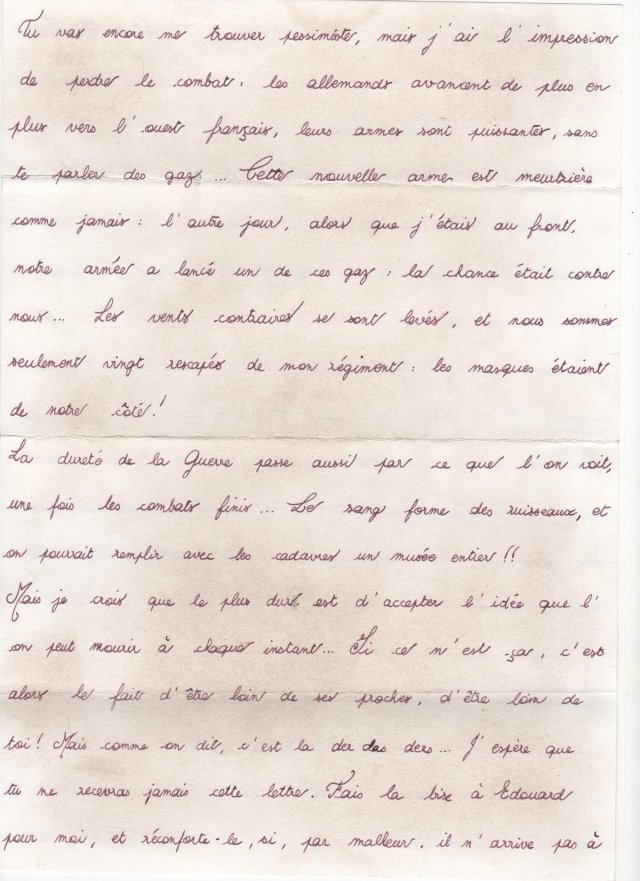 Tu vas encore me trouver pessimiste, mais j'ai l'impression
de perdre le combat. les allemands avancent de plus en
plus vers l'ouest français, leurs armes sont puissantes, sans
te parler des gaz ... Cette nouvelle arme est meurtrière
comme jamais : l'autre jour, alors que j'étais au front,
notre armée a lancé un de ces gaz : la chance était contre
nous ... Les vents contraires se sont levés, et nous sommes
seulement vingt rescapés de mon régiment : les masques étaient
de notre côté !
La dureté de la Guerre passe aussi par ce que l'on voit,
une fois les combats finis ... Le sang forme des ruisseaux, et
on pourrait remplir avec les cadavres un musée entier !!
Mais je crois que le plus dur est d'accepter l'idée que l'
on peut mourir à chaque instant ... Si ce n'est ça, c'est
alors le fait d'être loin de ses proches, d'être loin de
toi ! Mais comme on dit, c'est la der des ders ... J'espère que
tu ne recevras jamais cette lettre. Fais la bise à Edouard
pour moi, et réconforte-le, si, par malheur, il n'arrive pas à